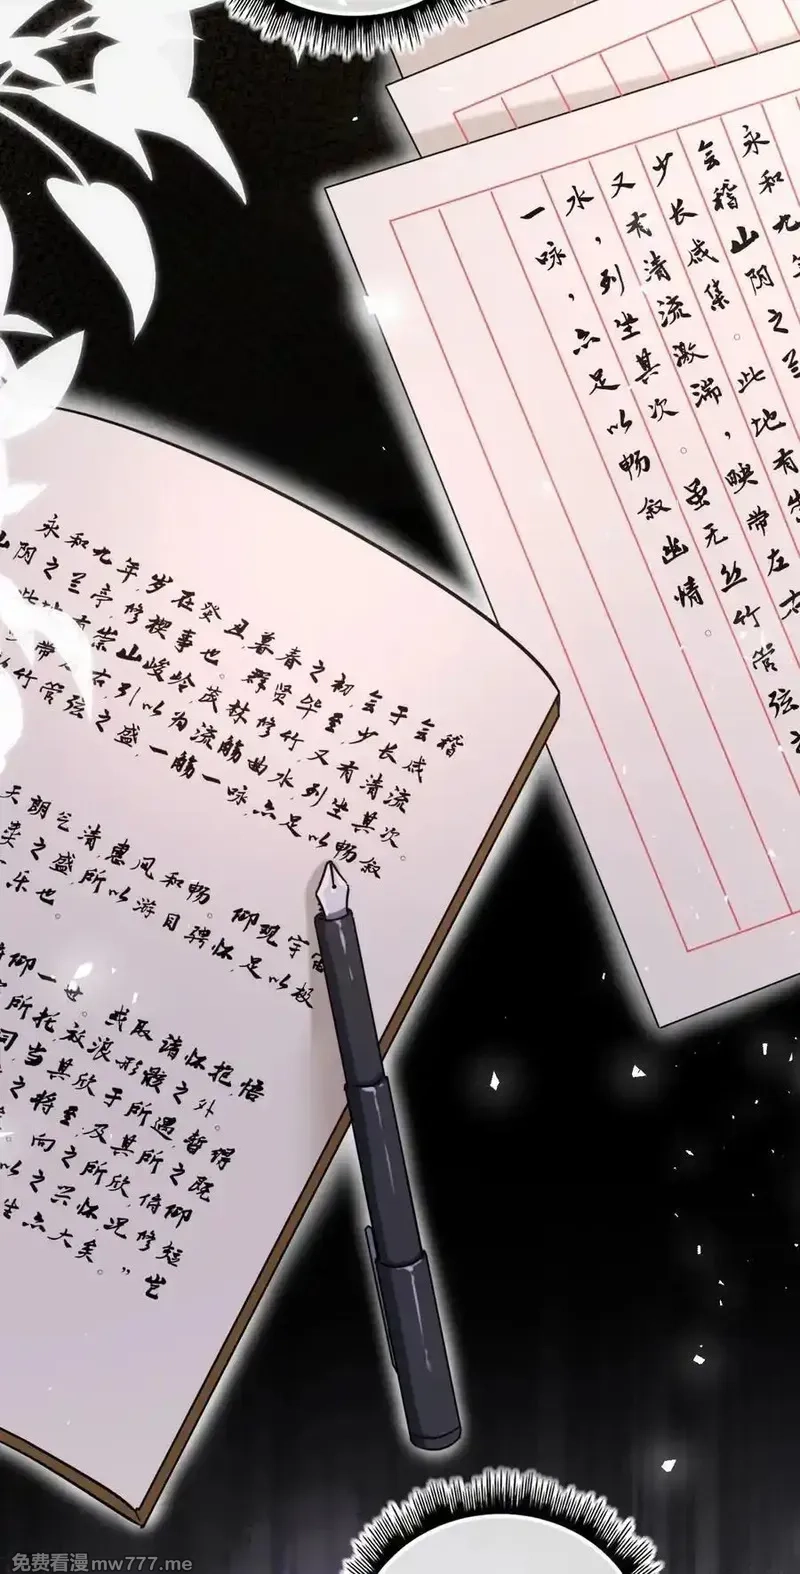 永和九年
会稽山阴之兰
少长咸集。此地有崇
又有清流激湍，映带左右
水，列坐其次。虽无丝竹管弦之
一咏，亦足以畅叙幽情。
永和九年,岁在癸丑,暮春之初,会于会稽
山阴之兰亭,修禊事也。群贤毕至,少长咸
此地有崇山峻岭,茂林修竹,又有清流
带左右,引以为流觞曲水,列坐其次。
竹管弦之盛,一觞一咏,亦足以畅叙
天朗气清,惠风和畅。仰观宇宙
类之盛,所以游目骋怀,足以极
乐也。
俯仰一世。或取诸怀抱,悟
所托,放浪形骸之外。
同,当其欣于所遇,暂得
之将至,及其所之既
。向之所欣,俯仰
以之兴怀,况修短
生亦大矣。”岂
免费看漫mw777.me